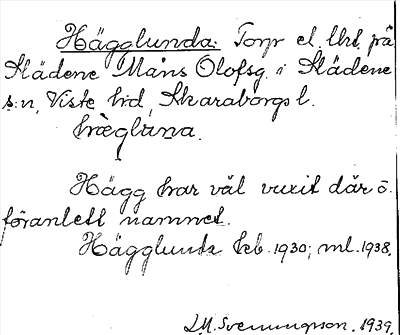 Hägglunda. Torp el. lht. på
Slädene Måns Olofsg. i Slädene
s:n, Viste hd, Skaraborgs l.
hæglũna.
Hägg har väl vuxit där o.
föranlett namnet.
Hägglunda beb. 1930; ml. 1938.
L.M. Svenungson. 1939.